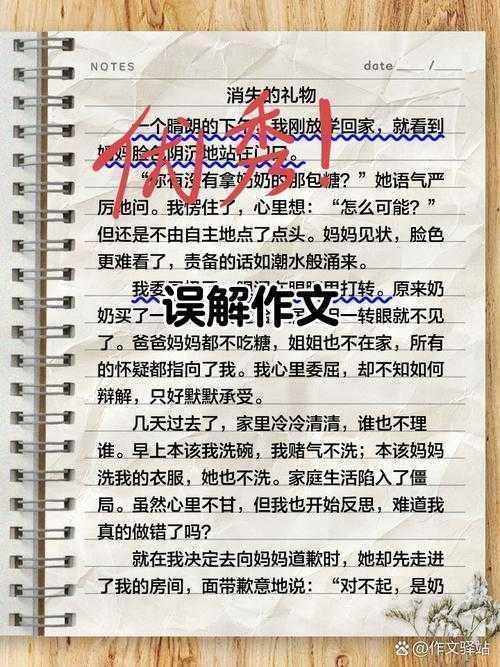 NOTES
date
/
消失的礼物
一个晴朗的下午，我刚放学回家，就看到
妈妈脸色阴沉地站在门口。
优秀！
“你有没有拿奶奶的那包糖？”她语气严
厉地问。我愣住了，心里想：“怎么可能？”
但还是不由自主地点了点头。妈妈见状，脸色
更难看了，责备的话如潮水般涌来。
我委 打转。原来奶
误解作文
奶买了一 一转眼就不见
了。爸爸妈妈都不吃糖，姐姐也不在家，所有
的怀疑都指向了我。我心里委屈，却不知如何
辩解，只好默默承受。
几天过去了，家里冷冷清清，谁也不理
谁。早上本该我洗碗，我赌气不洗；本该妈妈
洗我的衣服，她也不洗。家庭生活陷入了僵
局。虽然心里不甘，但我也开始反思，难道我
真的做错了吗？
就在我决定去向妈妈道歉时，她却先走进
了我的房间，面带歉意地说：“对不起，是奶
@作文驿站